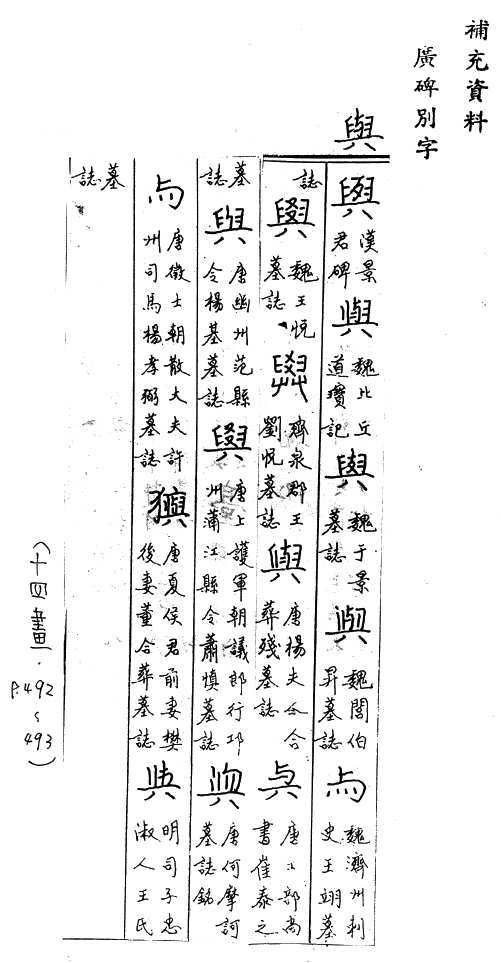 補充資料
廣碑別字
與
與漢景君碑與魏比丘道瓊記與魏于景墓誌與魏閻伯昇墓誌与魏濟州刺史王翊墓
誌與魏王悅墓誌與齊泉郡王劉悅墓誌與唐楊夫人合葬殘墓誌与唐工部尚書崔泰之
墓誌與唐幽州范縣令楊基墓誌與唐上護軍朝議郎行邛州蒲江縣令蕭慎墓誌與唐何摩訶墓誌銘
与唐徵士朝散大夫許州司馬楊孝弼墓誌唐夏侯君前妻樊後妻董合葬墓誌與明司子忠淑人王氏
墓誌
(十四畫.
P.492
~
493)